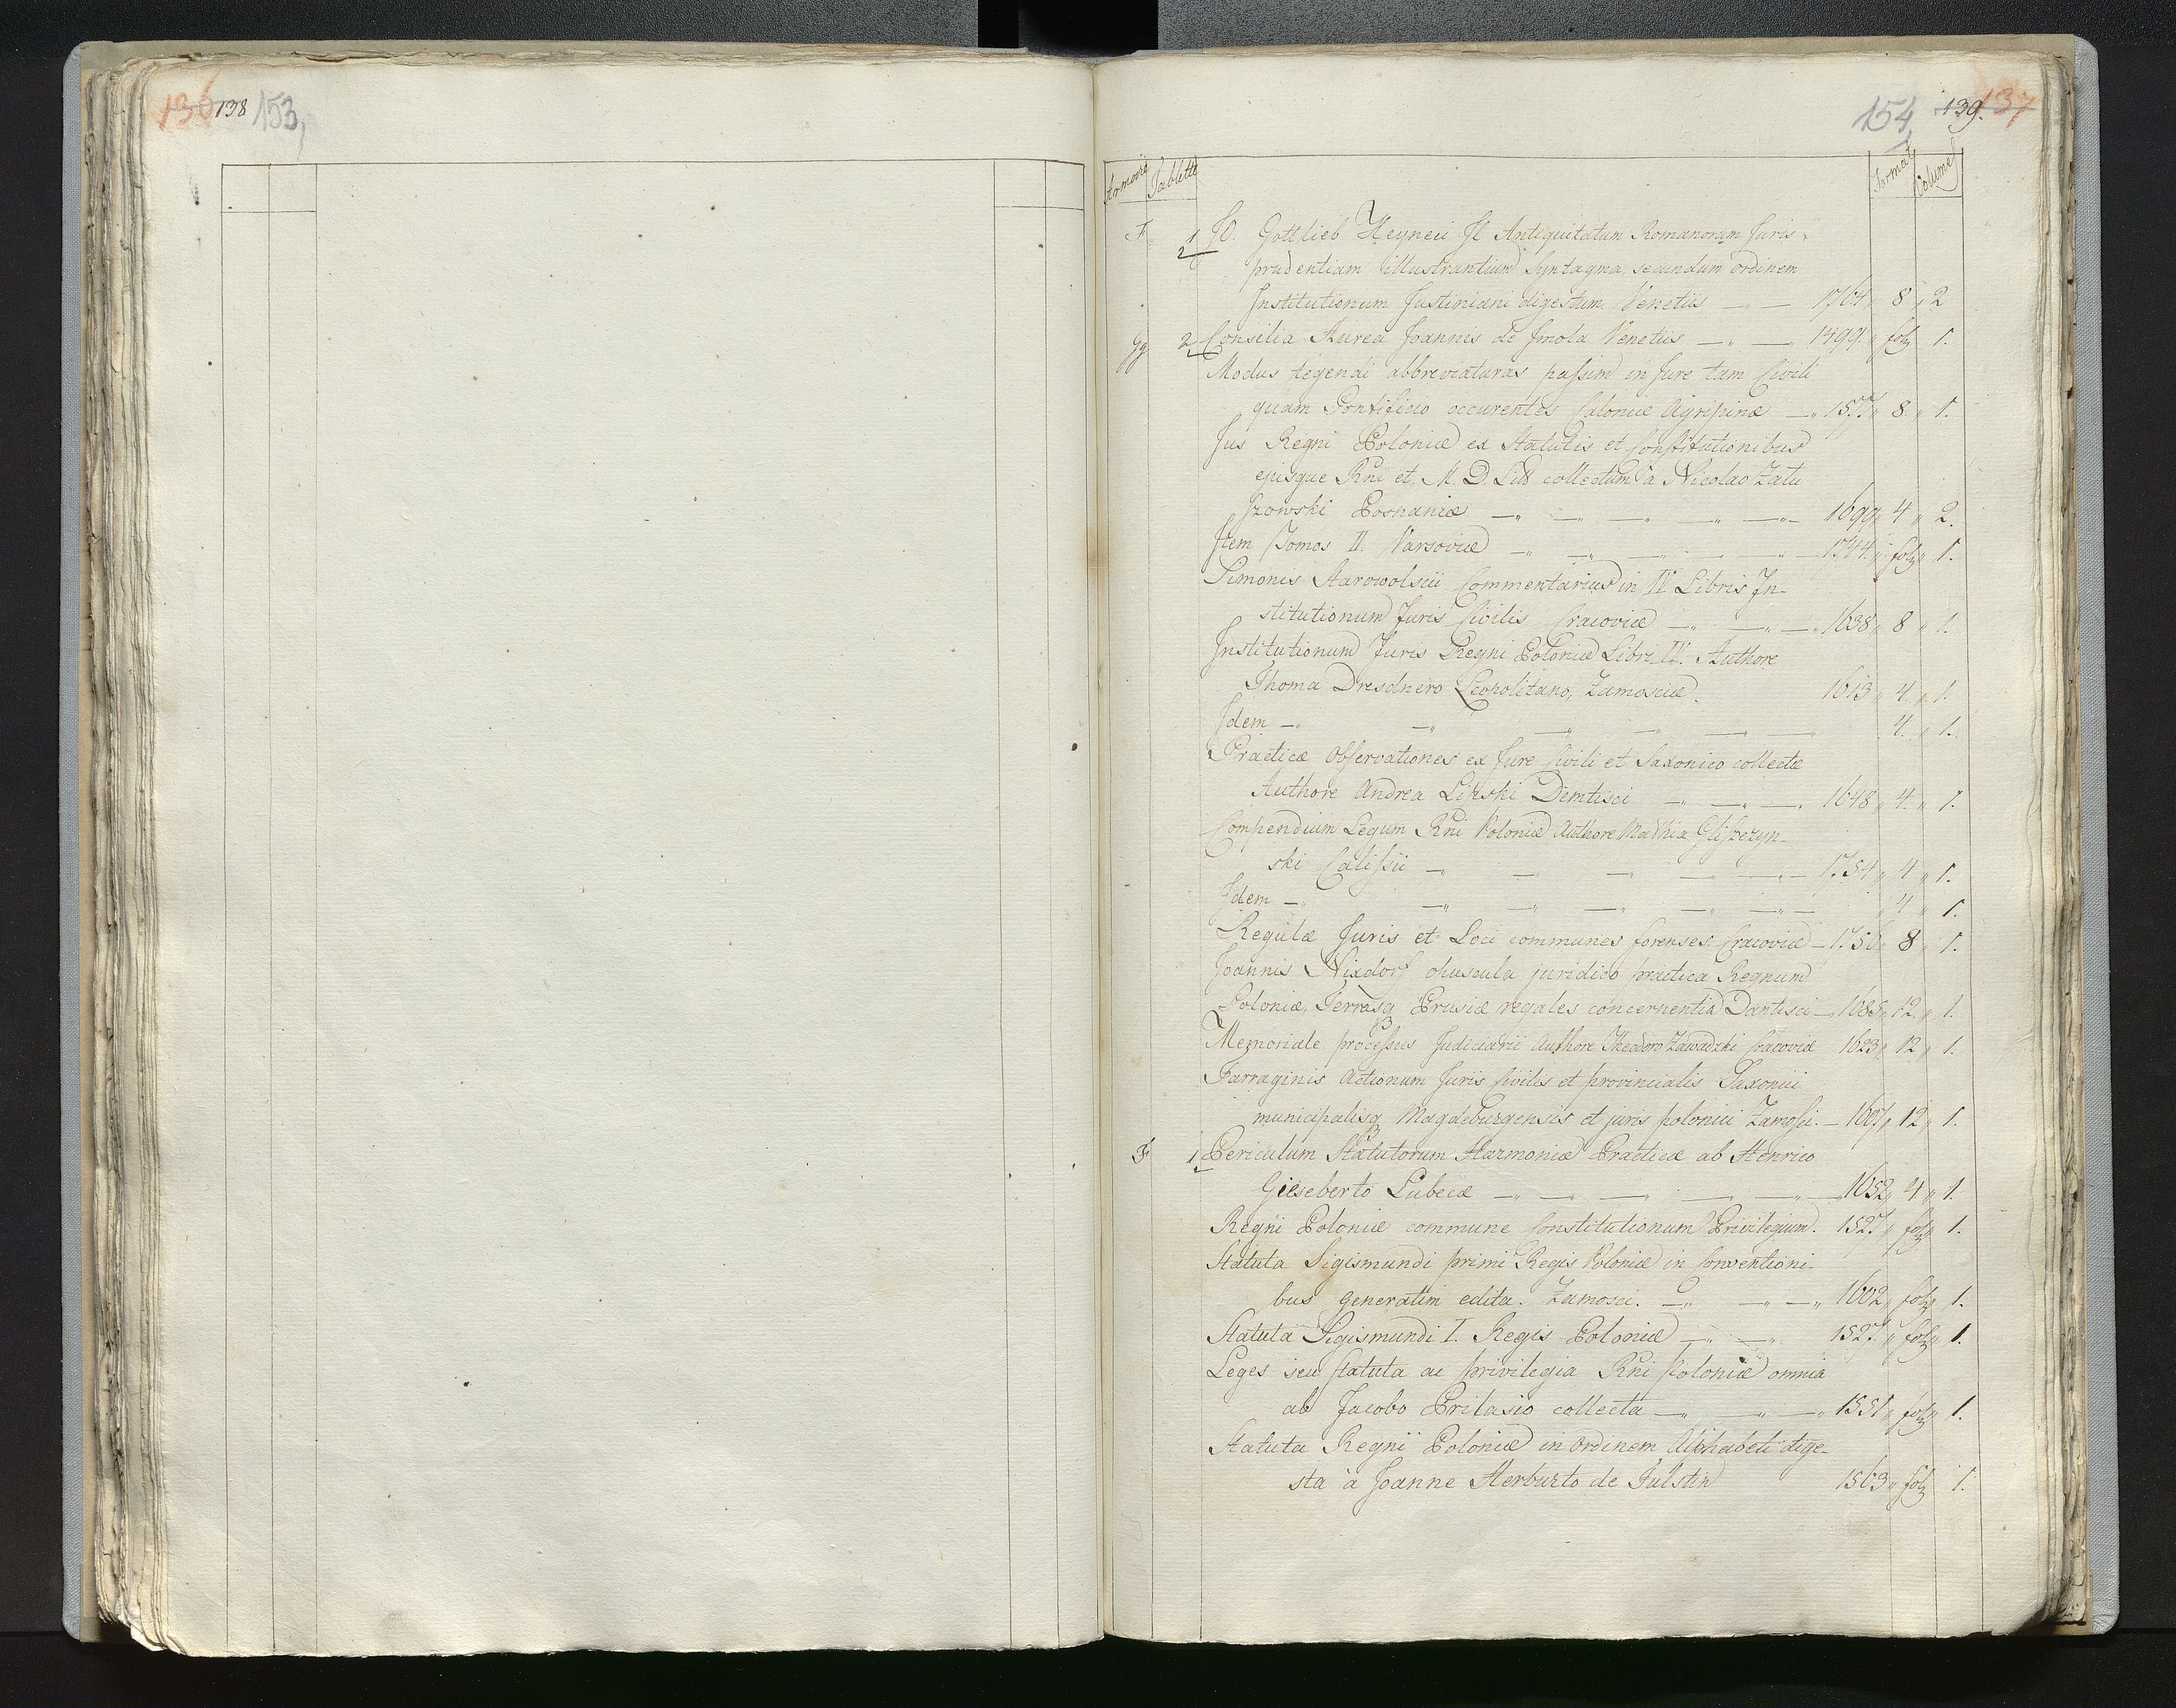 136 138 153,
154, 139. 137
Armoire Tablette Format Volumes
F 1 2 JO. Gottlieb Heyneii Jl Antiquitatum Romanorum Juris
prudentiam illustrantium Syntagma, secundum ordinem
Institutionum Justiniani digestum Venetiis — 1764 „ 8 „ 2
Gg 2 Consilia Aurea Joannis de Imola Venetiis —„— 1499. „ fol 1.
Modus legendi abbreviaturas passim in Jure tam Civili
quam Pontificio occurentes Coloniæ Agripinæ —„ 1577. „ 8. „ 1.
Jus Regni Poloniæ ex Statutis et Constitutionibus
ejusque Rni et M. D. Litt collectum à Nicolao Zala
szowski Posnaniæ —„ —„ —„ —„ —„— 1699 „ 4 „ 2.
Item Tomos II. Varsoviæ —„ —„ —„ —„ — 1744. „ fol „ 1.
Simonis Starowolscii Commentarius in IV Libris In-
stitutionum Juris Civilis Cracoviæ —„ —„ —„ 1638 „ 8 „ 1.
Institutionum Juris Regni Poloniæ Libri IV. Authore
Thoma Dresdnero Leopolitano, Zamosciæ. 1613 „ 4. „ 1.
Idem —„ —„ —„ —„ —„ —„ 4. „ 1.
Practicæ Observationes ex Jure Civili et Saxonico collectæ
Authore Andrea Lipski Demtisci —„ —„ —„ 1648 „ 4. „ 1.
Compendium Legum Rni Poloniæ Authore Mathia Gliszczyn-
ski Calissii —„ —„ —„ —„ —„— 1754 „ 4 „ 1.
Idem —„ —„ —„ —„ —„ —„— „ 4 „ 1.
Regulæ Juris et Loci communes forenses. Cracoviæ — 1750 „ 8 „ 1.
Joannis Nixdorf opuscula juridico practica Regnum
Poloniæ, Terrasq Prusiæ regales concernentia Dantisci — 1685 „ 12. „ 1.
Memoriale processus Judiciarii Authore Theodoro Zawadzki Cracoviæ 1623 „ 12 „ 1.
Farraginis Actionum Juris Civilis et provincialis Saxonici
municipalisq Magdeburgensis et juris polonici Zamosci. — 1607 „ 12 „ 1.
F 1 Periculum Statutorum Harmoniæ Practicæ ab Henrico
Gieseberto Lubecæ —„ —„ —„ —„ —„— 1652 „ 4 „ 1.
Regni Poloniæ commune Constitutionum Privilegium. 1527. „ fol „ 1.
Statuta Sigismundi primi Regis Poloniæ in Conventioni-
bus generalim edita. Zamosci. —„ —„ —„ 1602 „ fol 1.
Statuta Sigismundi I. Regis Poloniæ —„ —„ 1527. „ fol „ 1.
Leges seu statuta ac privilegia Rni Poloniæ omnia
ab Jacobo Prilasio collecta —„ —„ —„ 1551 „ fol „ 1.
Statuta Regnii Poloniæ in Ordinem Alphabeti dige-
sta à Joanne Herburto de Fulstin 1563 „ fol 1.